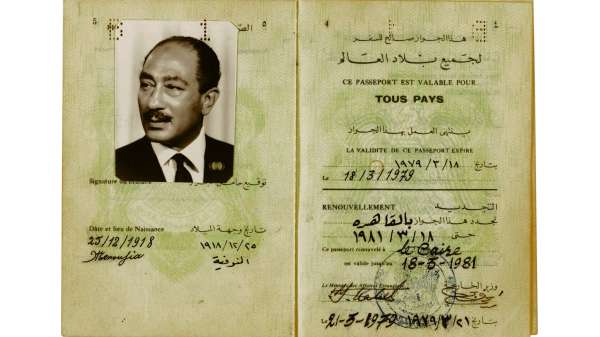 5
٥
Signature du titulaire
Dâte et lieu de Naissance
تاريخ وجهة الميلاد
25/12/1918
١٩١٨/١٢/٢٥
Menoufia
المنوفية
4
٤
هذا الجواز صالح للسفر
لجميع بلاد العالم
CE PASSEPORT EST VALABLE POUR
TOUS PAYS
ينتهى العمل بهذا الجواز
LA VALIDITE DE CE PASSEPORT EXPIRE
بتاريخ ١٩٧٩/٣/١٨
Le 18/3/1979
RENOUVELLEMENT
التجديد
تجدد هذا الجواز بالقاهره
حتى ١٩٨١/٣/١٨
Ce passeport renouvelé à le Caire
est valide jusqu'au 18-3-1981
Le Ministre des Affaires Etrangères
وزير الخارجية
Le 21-3-1979
بتاريخ ١٩٧٩/٣/٢١